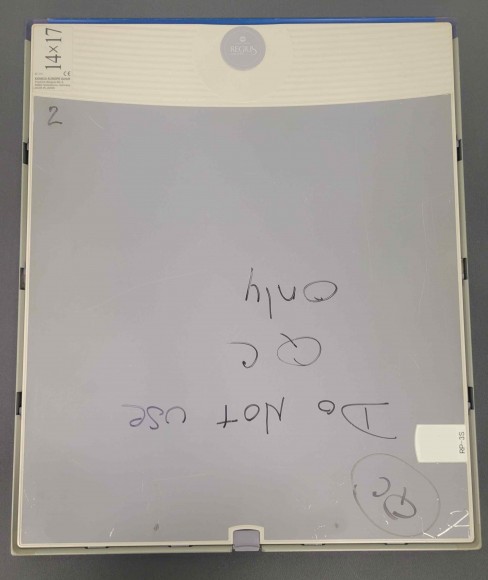 14×17
2
Do Not use
QC
only
QC
RP-3S